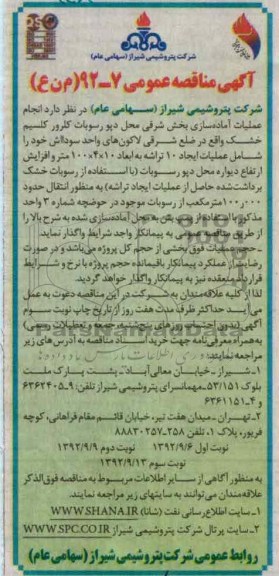 شرکت پتروشیمی شیراز (سهامی عام)
آگهی مناقصه عمومی ۷-۹۲ (م ن ع)
شرکت پتروشیمی شیراز (سهامی عام) در نظر دارد انجام
عملیات آماده‌سازی بخش شرقی محل دپو رسوبات کلرور کلسیم
خشک واقع در ضلع شرقی لاگون‌های واحد سوداآش خود را
شامل عملیات ایجاد ۱۰ تراشه به ابعاد ۱۰×۴×۱۰۰ متر و افزایش
ارتفاع دیواره محل دپو رسوبات (با استفاده از رسوبات خشک
برداشت‌شده حاصل از عملیات ایجاد تراشه) به منظور انتقال حدود
مترمکعب از رسوبات موجود در حوضچه شماره ۳ واحد
مذکور با استفاده از به محل آماده‌سازی شده به شرح بالا را
از طریق مناقصه عمومی به پیمانکار واجد شرایط واگذار نماید.
حجم عملیات فوق بخشی از حجم کل پروژه می‌باشد و در صورت
رضایت از عملکرد پیمانکار باقیمانده حجم پروژه با نرخ و شرایط
قرارداد منعقده نیز به پیمانکار واگذار خواهد گردید.
لذا از کلیه علاقه‌مندان به شرکت در این مناقصه دعوت به عمل
می‌آید حداکثر ظرف مدت هفت روز از تاریخ چاپ نوبت سوم
آگهی
به همراه معرفی‌نامه جهت خرید اسناد مناقصه به آدرس‌های زیر
مراجعه نمایند:
۱- شیراز - خیابان معالی آباد - پشت پارک ملت
بلوک ۵۳/۱۵۱ مهمانسرای پتروشیمی شیراز تلفن: ۹-۶۳۶۲۴۰۵
و ۴-۶۳۶۱۱۵۱
۲- تهران - میدان هفت تیر، خیابان قائم مقام فراهانی، کوچه
فرپور، پلاک ۱، تلفن: ۲۵۸-۸۸۸۳۰۲۵۷
نوبت اول ۱۳۹۲/۹/۶ نوبت دوم ۱۳۹۲/۹/۹
نوبت سوم ۱۳۹۲/۹/۱۳
به منظور آگاهی از سایر اطلاعات مربوط به مناقصه فوق‌الذکر
علاقه‌مندان می‌توانند به سایتهای زیر مراجعه نمایند.
۱- سایت اطلاع‌رسانی نفت (شانا) WWW.SHANA.IR
۲- سایت پرتال شرکت پتروشیمی شیراز WWW.SPC.CO.IR
روابط عمومی شرکت پتروشیمی شیراز (سهامی عام)